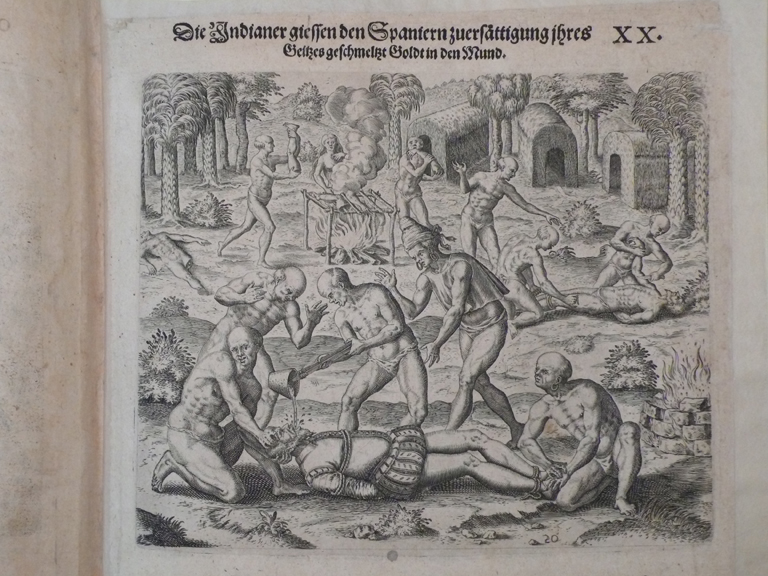 Die Indianer giessen den Spaniern zuersättigung jhres XX.
Geitzes geschmeltzt Goldt in den Mund.
20